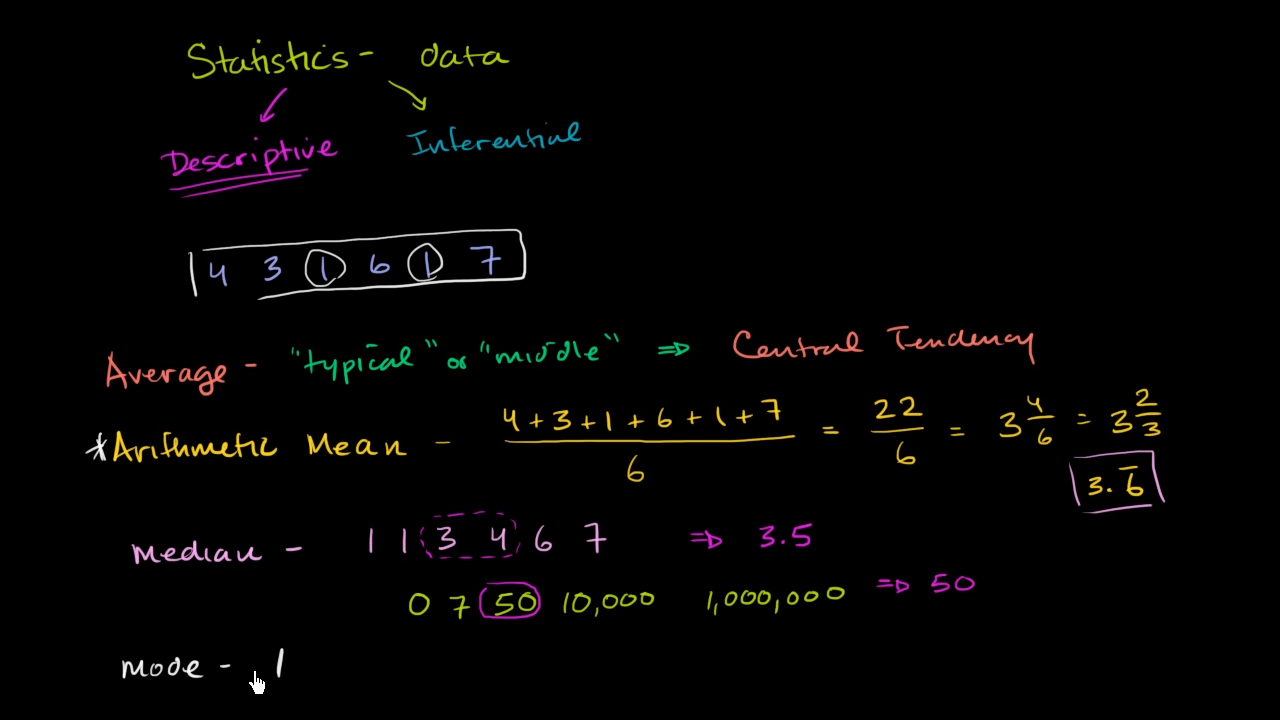 Statistics - data
Descriptive Inferential
4 3 1 6 1 7
Average - "typical" or "middle" ⇒ Central Tendency
*Arithmetic Mean - (4+3+1+6+1+7)/6 = 22/6 = 3 4/6 = 3 2/3
3.6̅
Median - 1 1 3 4 6 7 ⇒ 3.5
0 7 50 10,000 1,000,000 ⇒ 50
Mode - 1